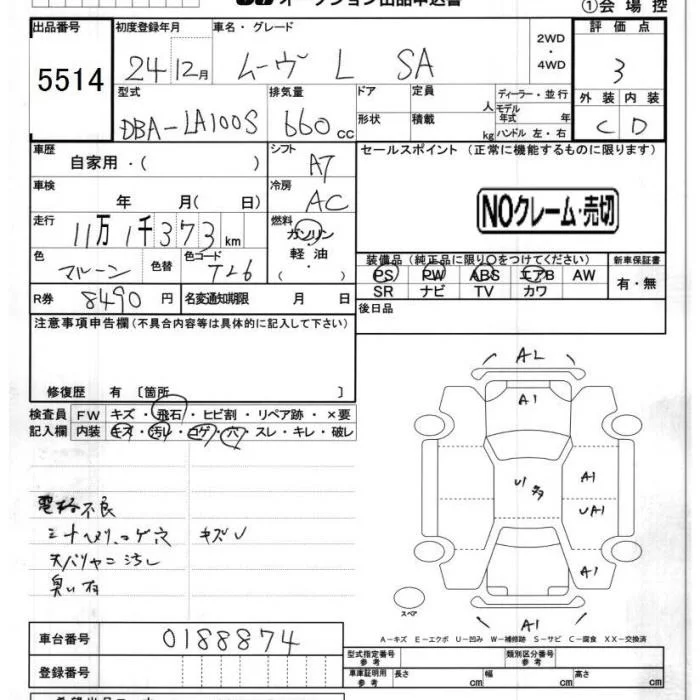 オークション出品申込書
①会場控
出品番号 初度登録年月 車名・グレード 2WD ・ 4WD 評価点
5514 24年12月 ムーヴ L SA 3
型式 排気量 ドア 定員 人 ディーラー・並行 外装 内装
DBA-LA100S 660cc 形状 積載 kg モデル年式 年 C D
ハンドル 左・右
車歴 自家用・( ) シフト AT セールスポイント (正常に機能するものに限ります)
車検 年 月( 日) 冷房 AC
NOクレーム・売切
走行 11万1千373km 燃料 ガソリン
軽油
( ・ )
色 マルーン 色替 色コード T26
装備品(純正品に限り○をつけてください) 新車保証書
PS PW ABS エアB AW 有・無
SR ナビ TV カワ
R券 8490円 名変通知期限 月 日
後日品
注意事項申告欄(不具合内容等は具体的に記入して下さい)
修復歴 有 〔箇所 〕
検査員 FW キズ・飛石・ヒビ割・リペア跡・×要
記入欄 内装 キズ・汚れ・コゲ・穴・スレ・キレ・破レ
AL
A1
U1 多
A1
UA1
A1
A1
電格不良
シートヘタリ、コゲ穴 キズ
天バリヤニ汚し
臭い有
スペア
A－キズ E－エクボ U－凹み W－補修跡 S－サビ C－腐食 XX－交換済
車台番号 0188874
型式指定番号 参考 類別区分番号 参考
登録番号 車庫証明用 参考 長さ cm 幅 cm 高さ cm